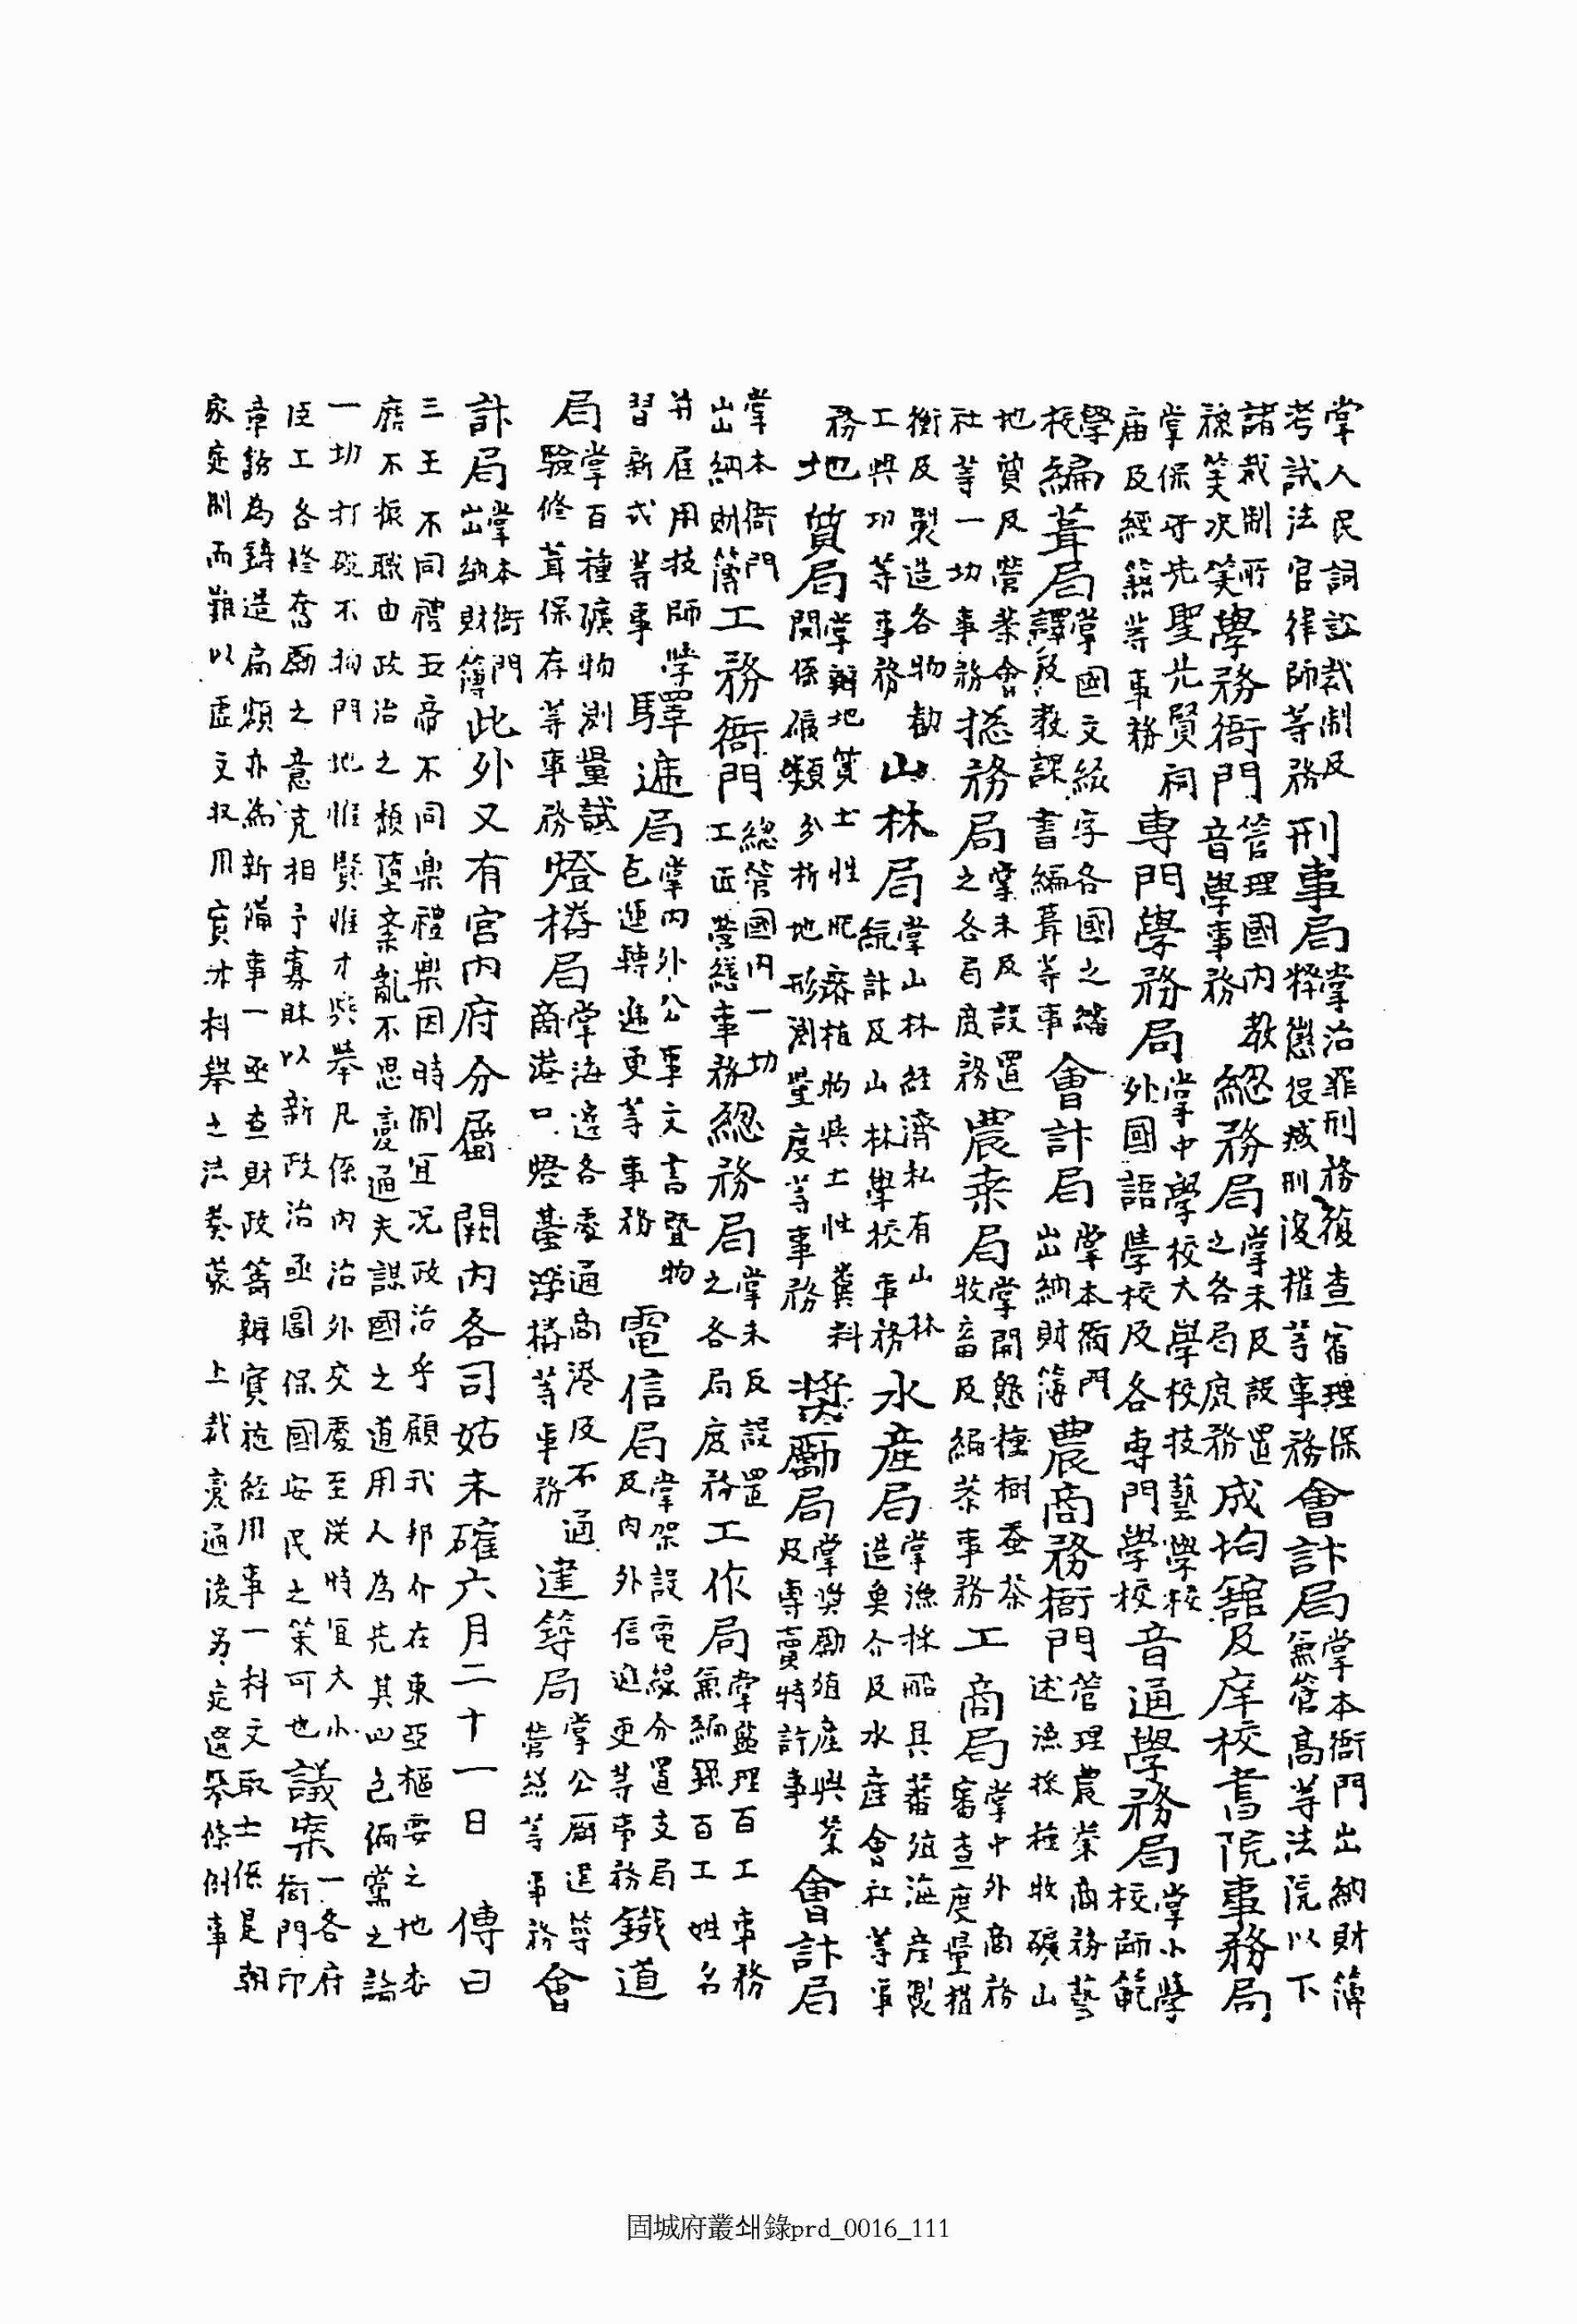 掌人民詞訟裁制及考試法官律師等務刑事局掌治罪刑務復查宿理保释懲役减刑浚權等事務會計局掌本衙門出納財簿兼管高等法院以下
諸裁制所笑次笑學務衙門管理國內教音學事務總務局掌未及設置之各局庶務成均舘及庠校書院事務局
掌保守先聖先賢祠庙及經籍等事務專門學務局掌中學校大學校技藝學校外國語學校及各專門學校音通學務局掌小學校師範
學校編葺局掌國文綴字各國之繙譯及教課書編葺等事會計局掌本衙門出納財簿農商務衙門管理農業商務藝述漁採種牧礦山
地質及營業會社等一切事務摠務局掌未及設置之各局度務農桑局掌開懇種樹蚕茶牧畜及編茶事務工商局掌中外商務審查度量楷
衡及製造各物勸工與功等事務山林局掌山林経濟私有山林統計及山林學校事務水産局掌漁採船具蕃殖海産製造奠介及水産會社等事
務地質局掌辦地質土性肥瘠植物與土性糞料関係礦類分析地形測量度等事務奬勵局掌奬勵殖産興業及專賣特許事會計局
掌本衙門出納財簿工務衙門總管國內一切工匠營繕事務總務局掌未及設置之各局度務工作局掌監理百工事務兼編錄百工姓名
并雇用技師學習新式等事驛逓局掌內外公事文書暨物包運轉逓更等事務電信局掌架設電線分置支局及內外信逓更等事務鐵道
局掌百種礦物測量試驗修葺保存等事務燈樁局掌海邊各處通商港及不通商港口燈臺浮樁等事務建築局掌公廨逞等營繕等事務會
計局掌本衙門出納財簿此外又有宮內府分屬 闕內各司姑未確六月二十一日 傳曰
三王不同禮五帝不同樂禮樂因時制宜况政治乎顧我邦介在東亞樞要之地本
庶不振職由政治之頹墮紊亂不思變通夫謀國之道用人為先其四色偏黨之論
一切打破不拘門地惟賢惟才些擧凡係內治外交處至從時宜大小
臣工各修奮勵之意克相予寡昧以新政治亟圖保國安民之策可也議案一各府衙門印
章鑄為鑄造扁額亦為新備事一亟查財政籌辦實施経用事一科文取士係是朝
家定制而難以虛文収用實才科擧之法奏蒙 上裁變通後另定選擧條例事